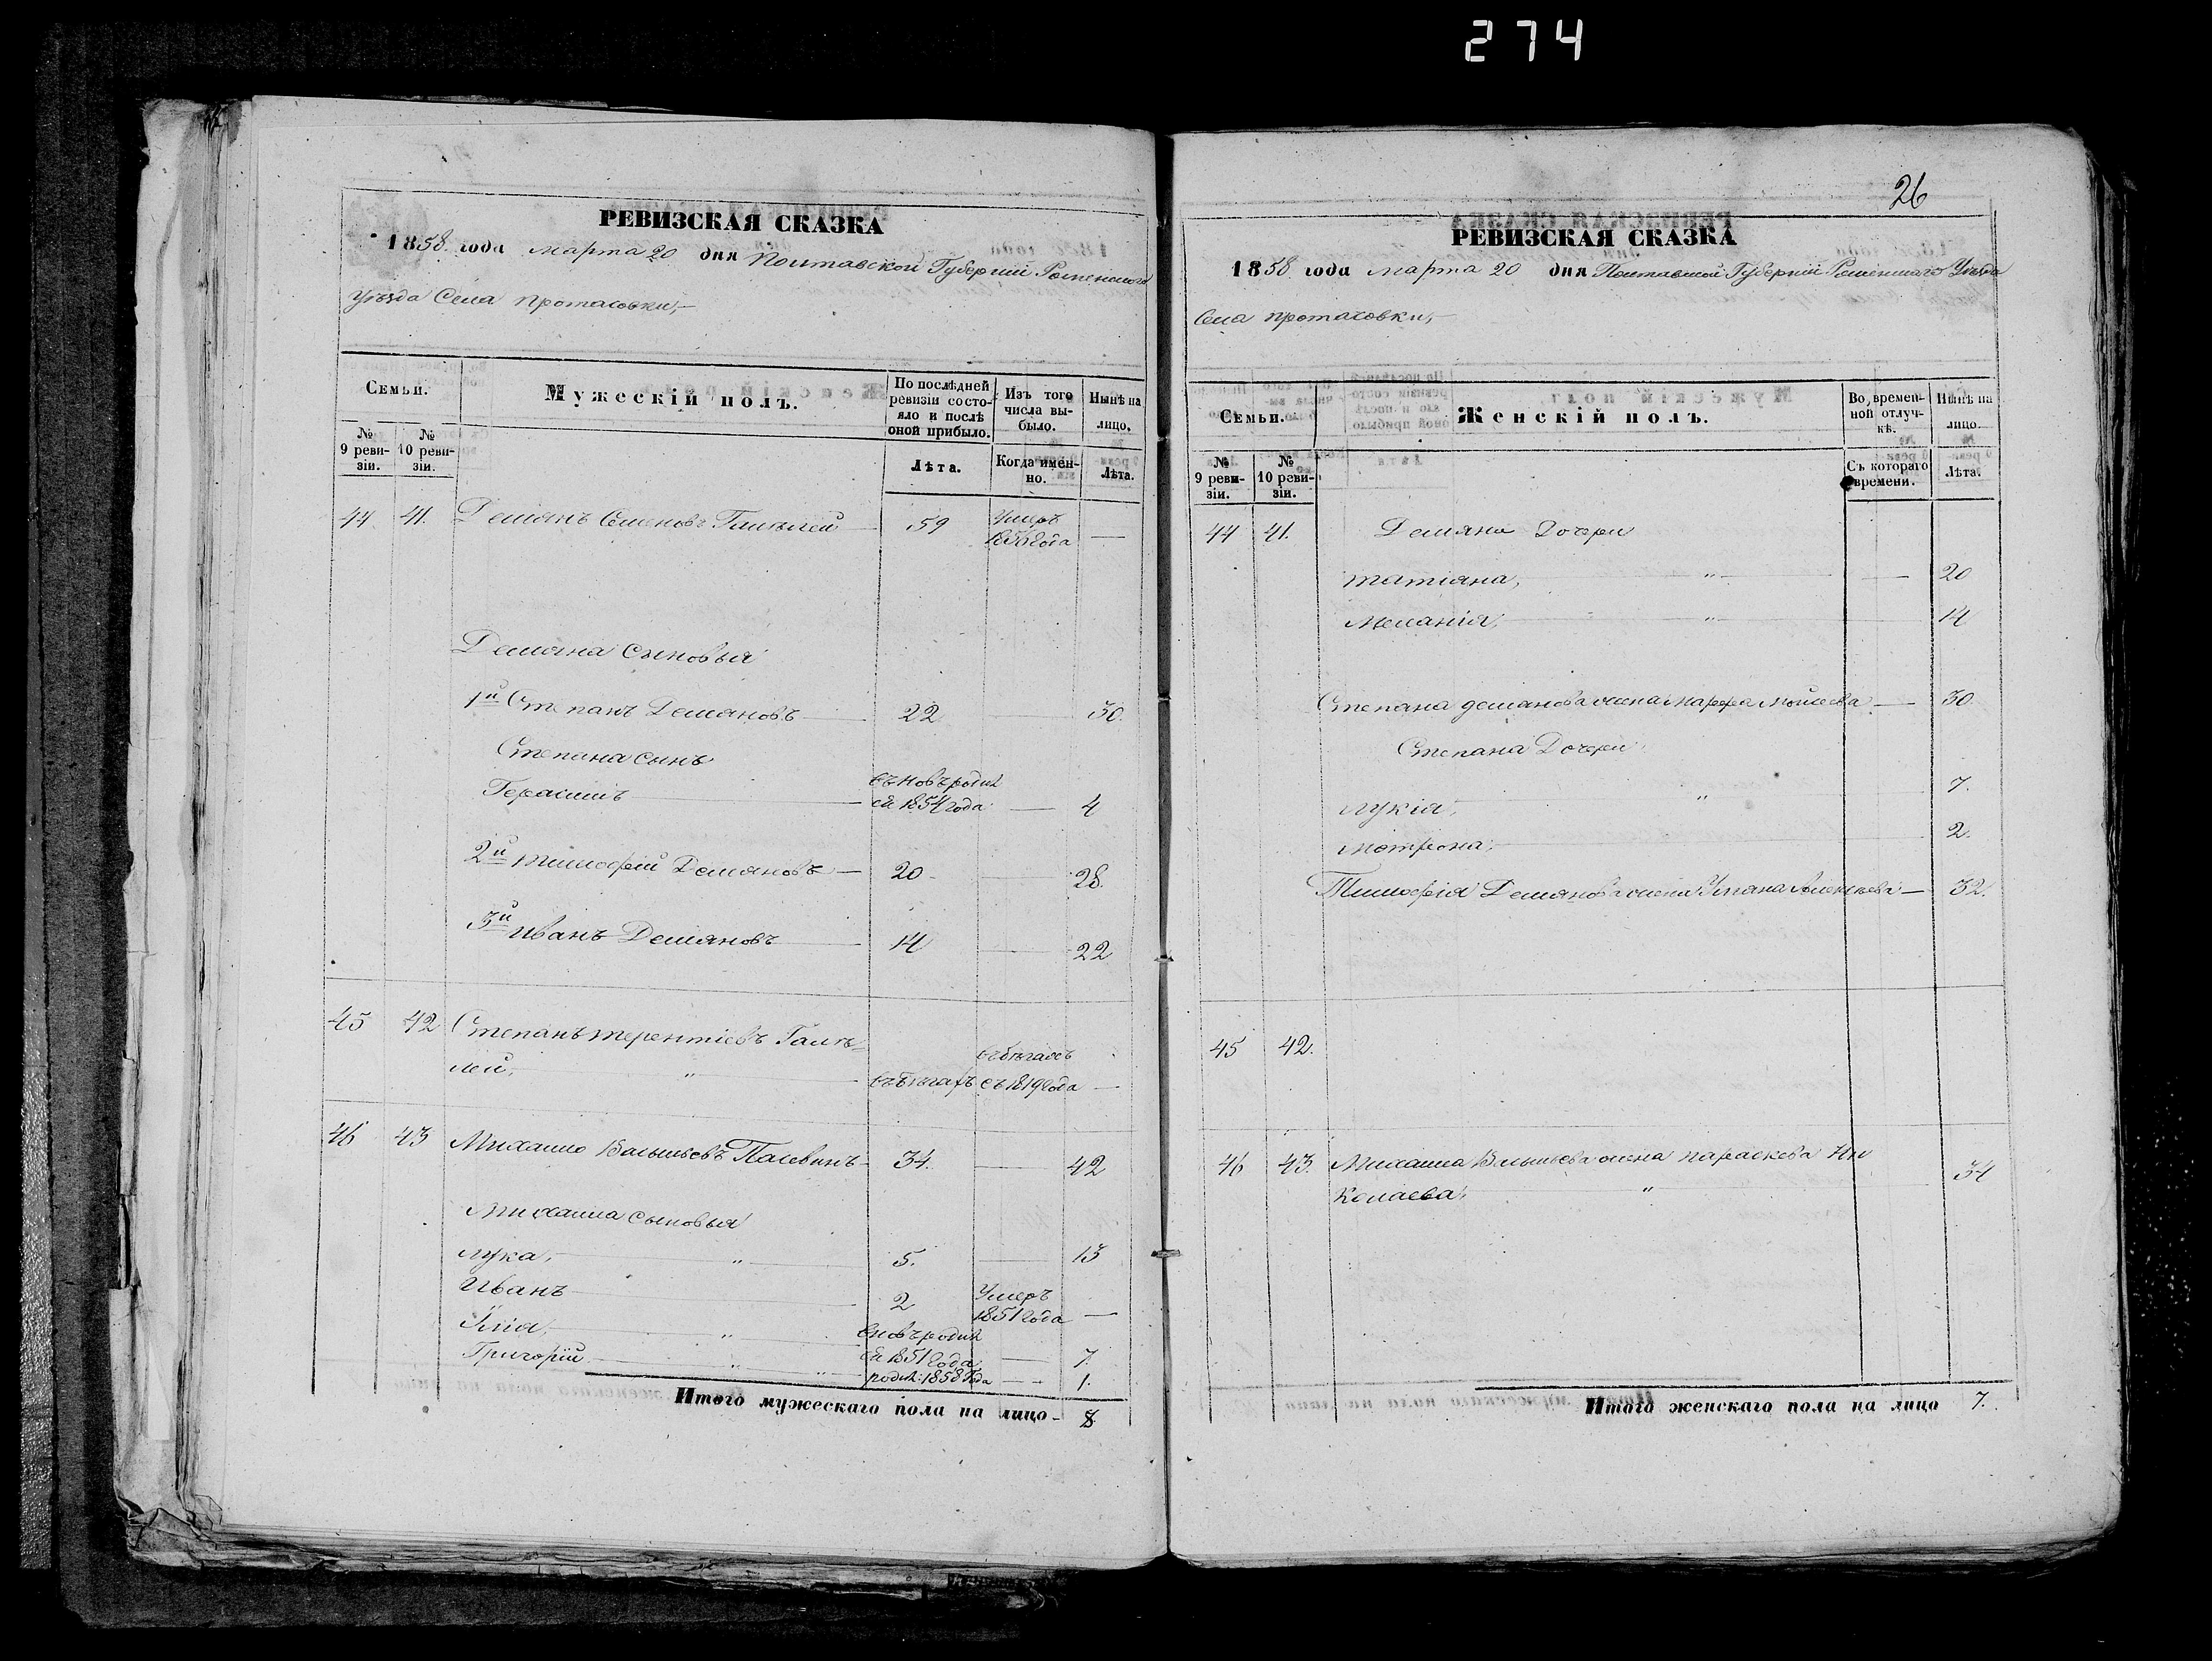 274
РЕВИЗСКАЯ СКАЗКА
1858 года марта 20 дня Полтавской Губерніи Роменского
Уѣзда Села Протасовки,
Семьи.
Мужескій полъ.
По послѣдней ревизіи состояло и послѣ оной прибыло.
Изъ того числа выбыло.
Нынѣ на лицо.
№ 9 ревизіи.
№ 10 ревизіи.
Лѣта.
Когда именно.
Лѣта.
44 41. Демянъ Семеновъ 59 Умеръ 1856 года —
Демяна сыновья
1й Степанъ Демяновъ 22 30.
Степана сынъ
Герасимъ 1854 года — 4
2й Тимофей Демяновъ — 20 — 28.
3й Иванъ Демяновъ 14 — 22
45 42 Степанъ Терентіевъ
лей, " въ бѣгахъ съ 1819 года —
46 43 Михайло Васильевъ 34. — 42
Михаила сыновья
Лука, " 5. — 13
Иванъ 2 Умеръ 1851 года —
Илія, " 1851 года — 7.
Григорій " 1858 года — 1.
Итого мужескаго пола на лицо - 8
26
РЕВИЗСКАЯ СКАЗКА
1858 года марта 20 дня Полтавской Губерніи Роменского Уѣзда
Села Протасовки,
Семьи.
Женскій полъ.
Во временной отлучкѣ.
Нынѣ на лицо.
№ 9 ревизіи.
№ 10 ревизіи.
Съ котораго времени.
Лѣта.
44 41. Демяна Дочери
Татіяна, " — 20
Меланія, " 14
Степана Демянова жена Марфа Моисеева — 30.
Степана Дочери
Лукія, " 7.
Мотрона, 2.
Тимофія Демянова жена Уліана — 32.
45 42.
46 43. Михаила Васильева жена Параскева Ни
колаева, " 34
Итого женскаго пола на лицо 7.